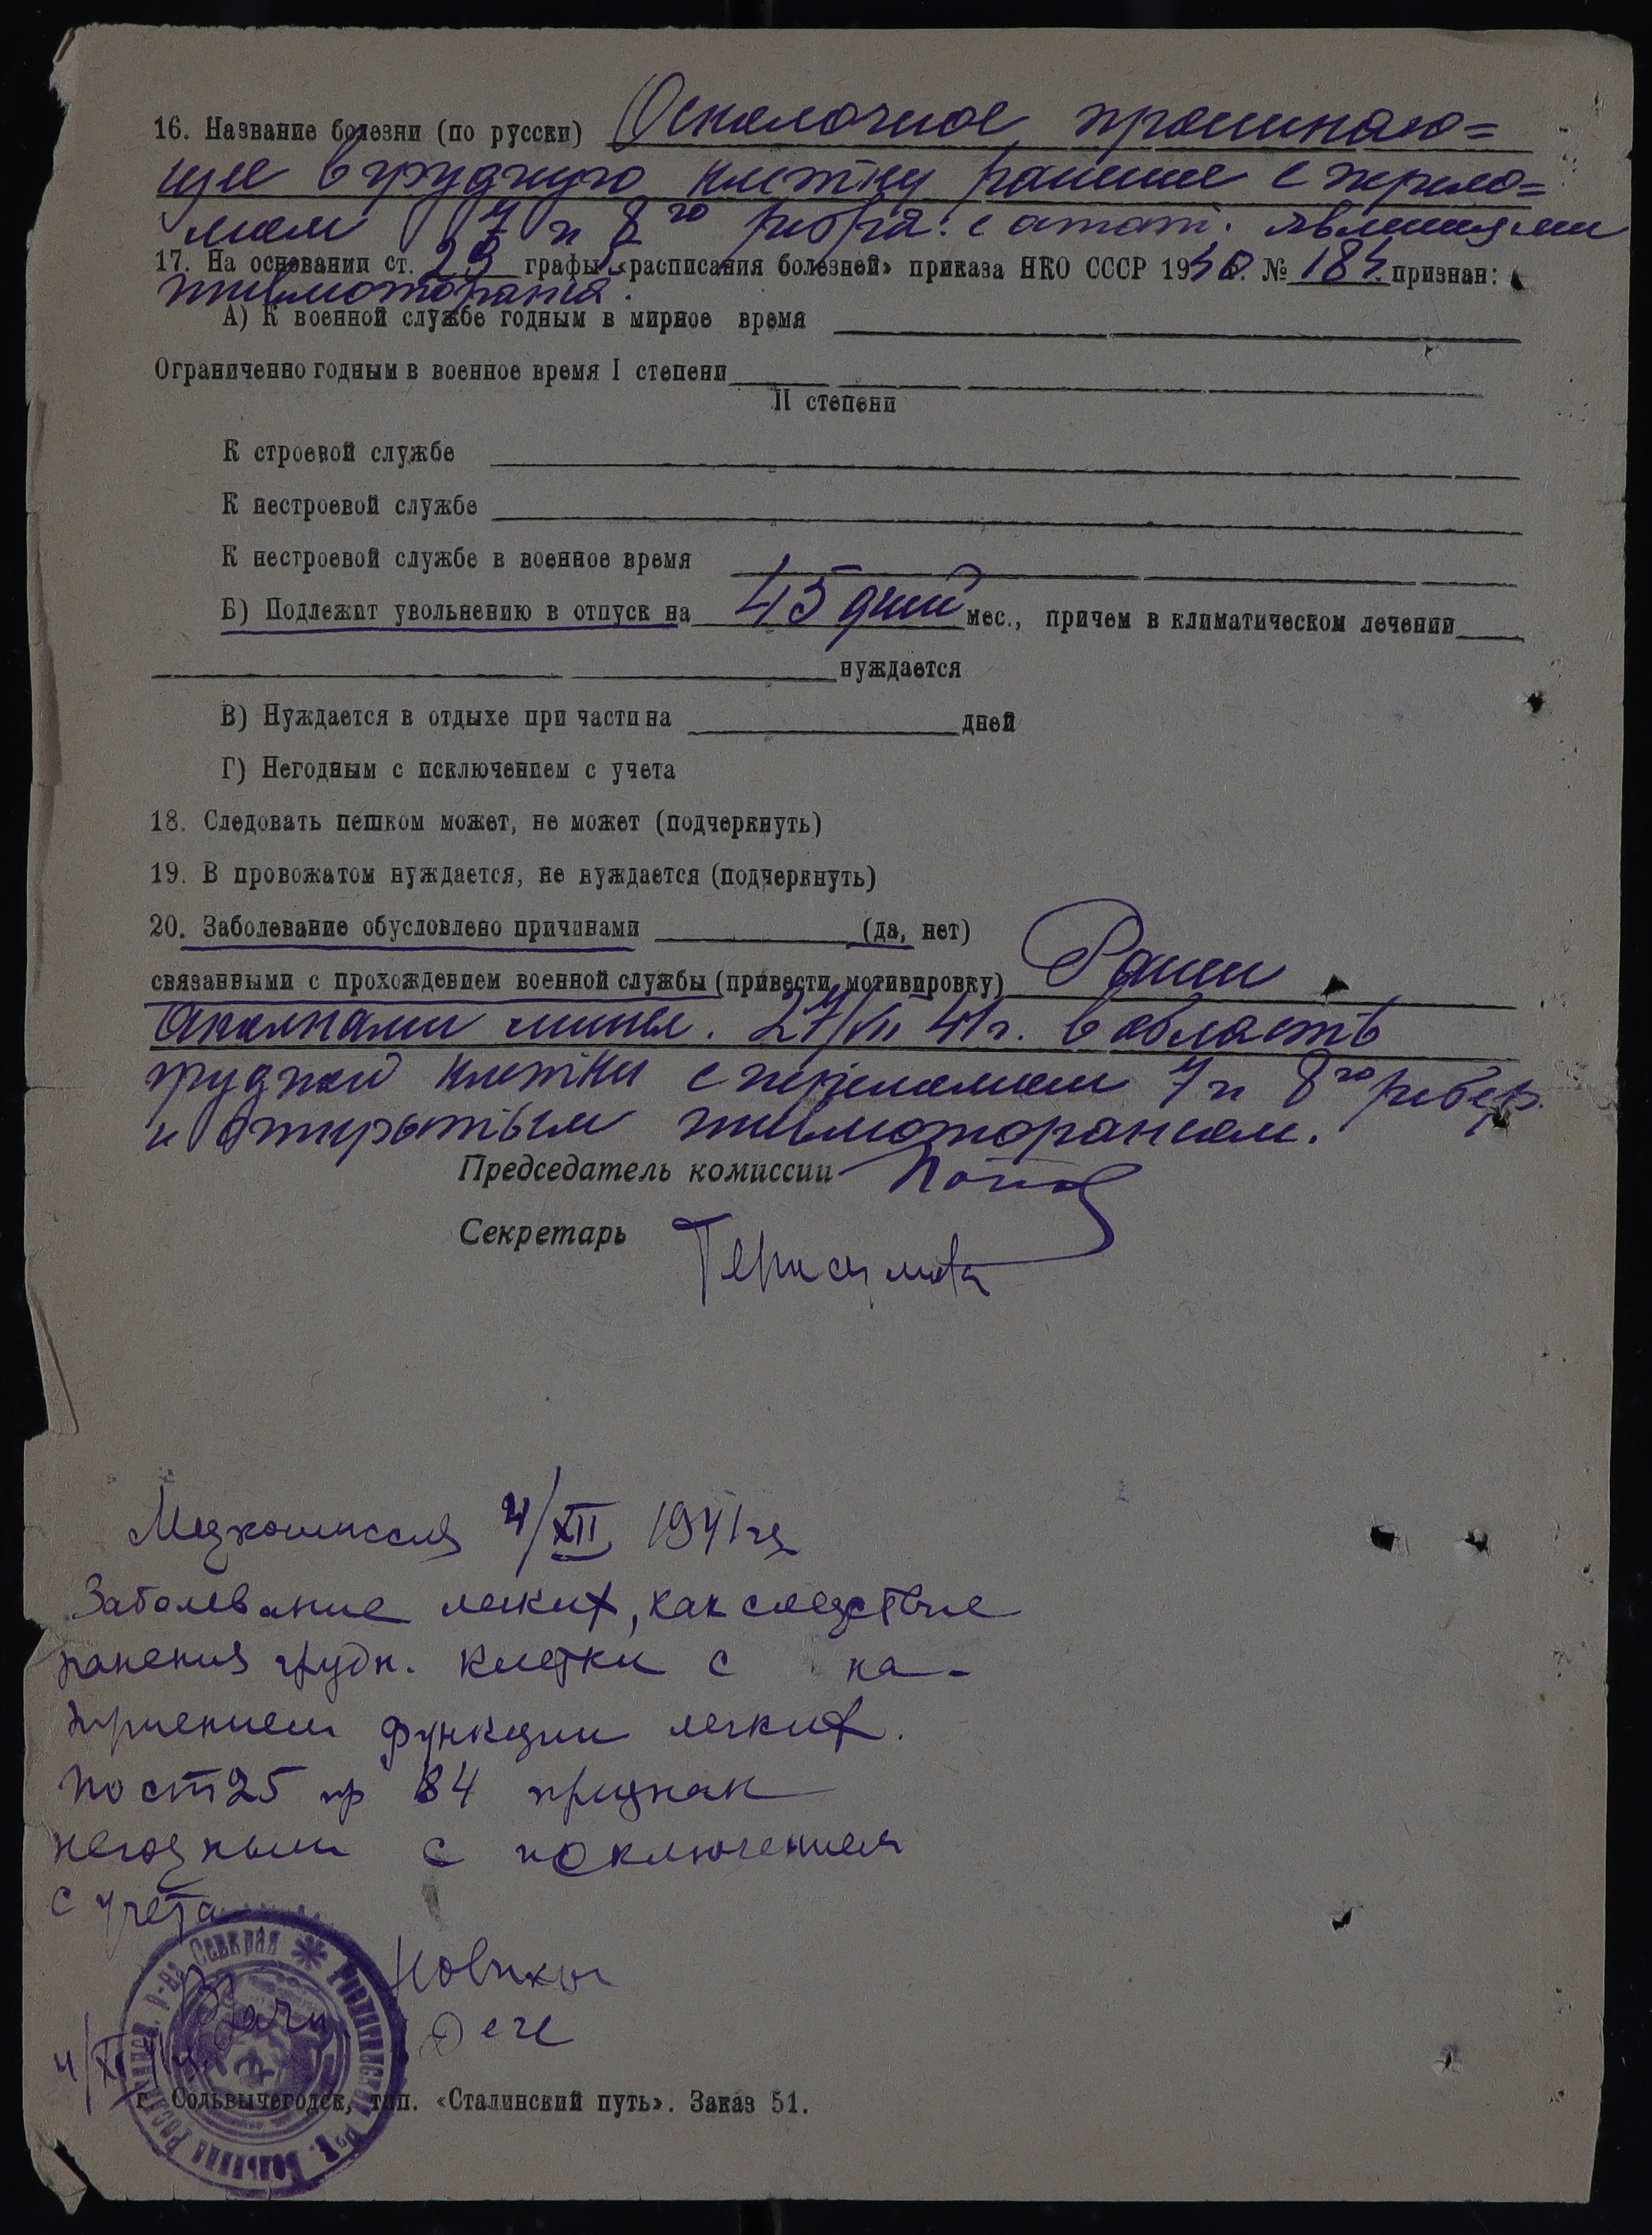 16. Название болезни (по русски) Осколочное проникаю=
щее в грудную клетку ранение с перело=
мом 7 и 8 го ребра: с остат. явлениями
17. На основании ст. 29 графы «расписания болезней» приказа НКО СССР 1940г. № 184 признан:
пневмоторакса.
А) К военной службе годным в мирное время
Ограниченно годным в военное время I степени
II степени
К строевой службе
К нестроевой службе
К нестроевой службе в военное время
Б) Подлежит увольнению в отпуск на 45 дней мес., причем в климатическом лечении
нуждается
В) Нуждается в отдыхе при части на дней
Г) Негодным с исключением с учета
18. Следовать пешком может, не может (подчеркнуть)
19. В провожатом нуждается, не нуждается (подчеркнуть)
20. Заболевание обусловлено причинами (да, нет)
связанными с прохождением военной службы (привести мотивировку) Ранен
осколками мины. 27/VII 41г. в область
грудной клетки с переломом 7 и 8 го ребер.
и открытым пневмотораксом.
Председатель комиссии Попов
Секретарь Герасимова
Медкомиссия 4/XII 1941 г.
Заболевание легких, как следствие
ранения грудн. клетки с на-
рушением функции легких.
По ст 25 пр 184 признан
негодным с исключением
с учета
Врачи Новиков
4/XII 41г.
г. Сольвычегодск, тип. «Сталинский путь». Заказ 51.